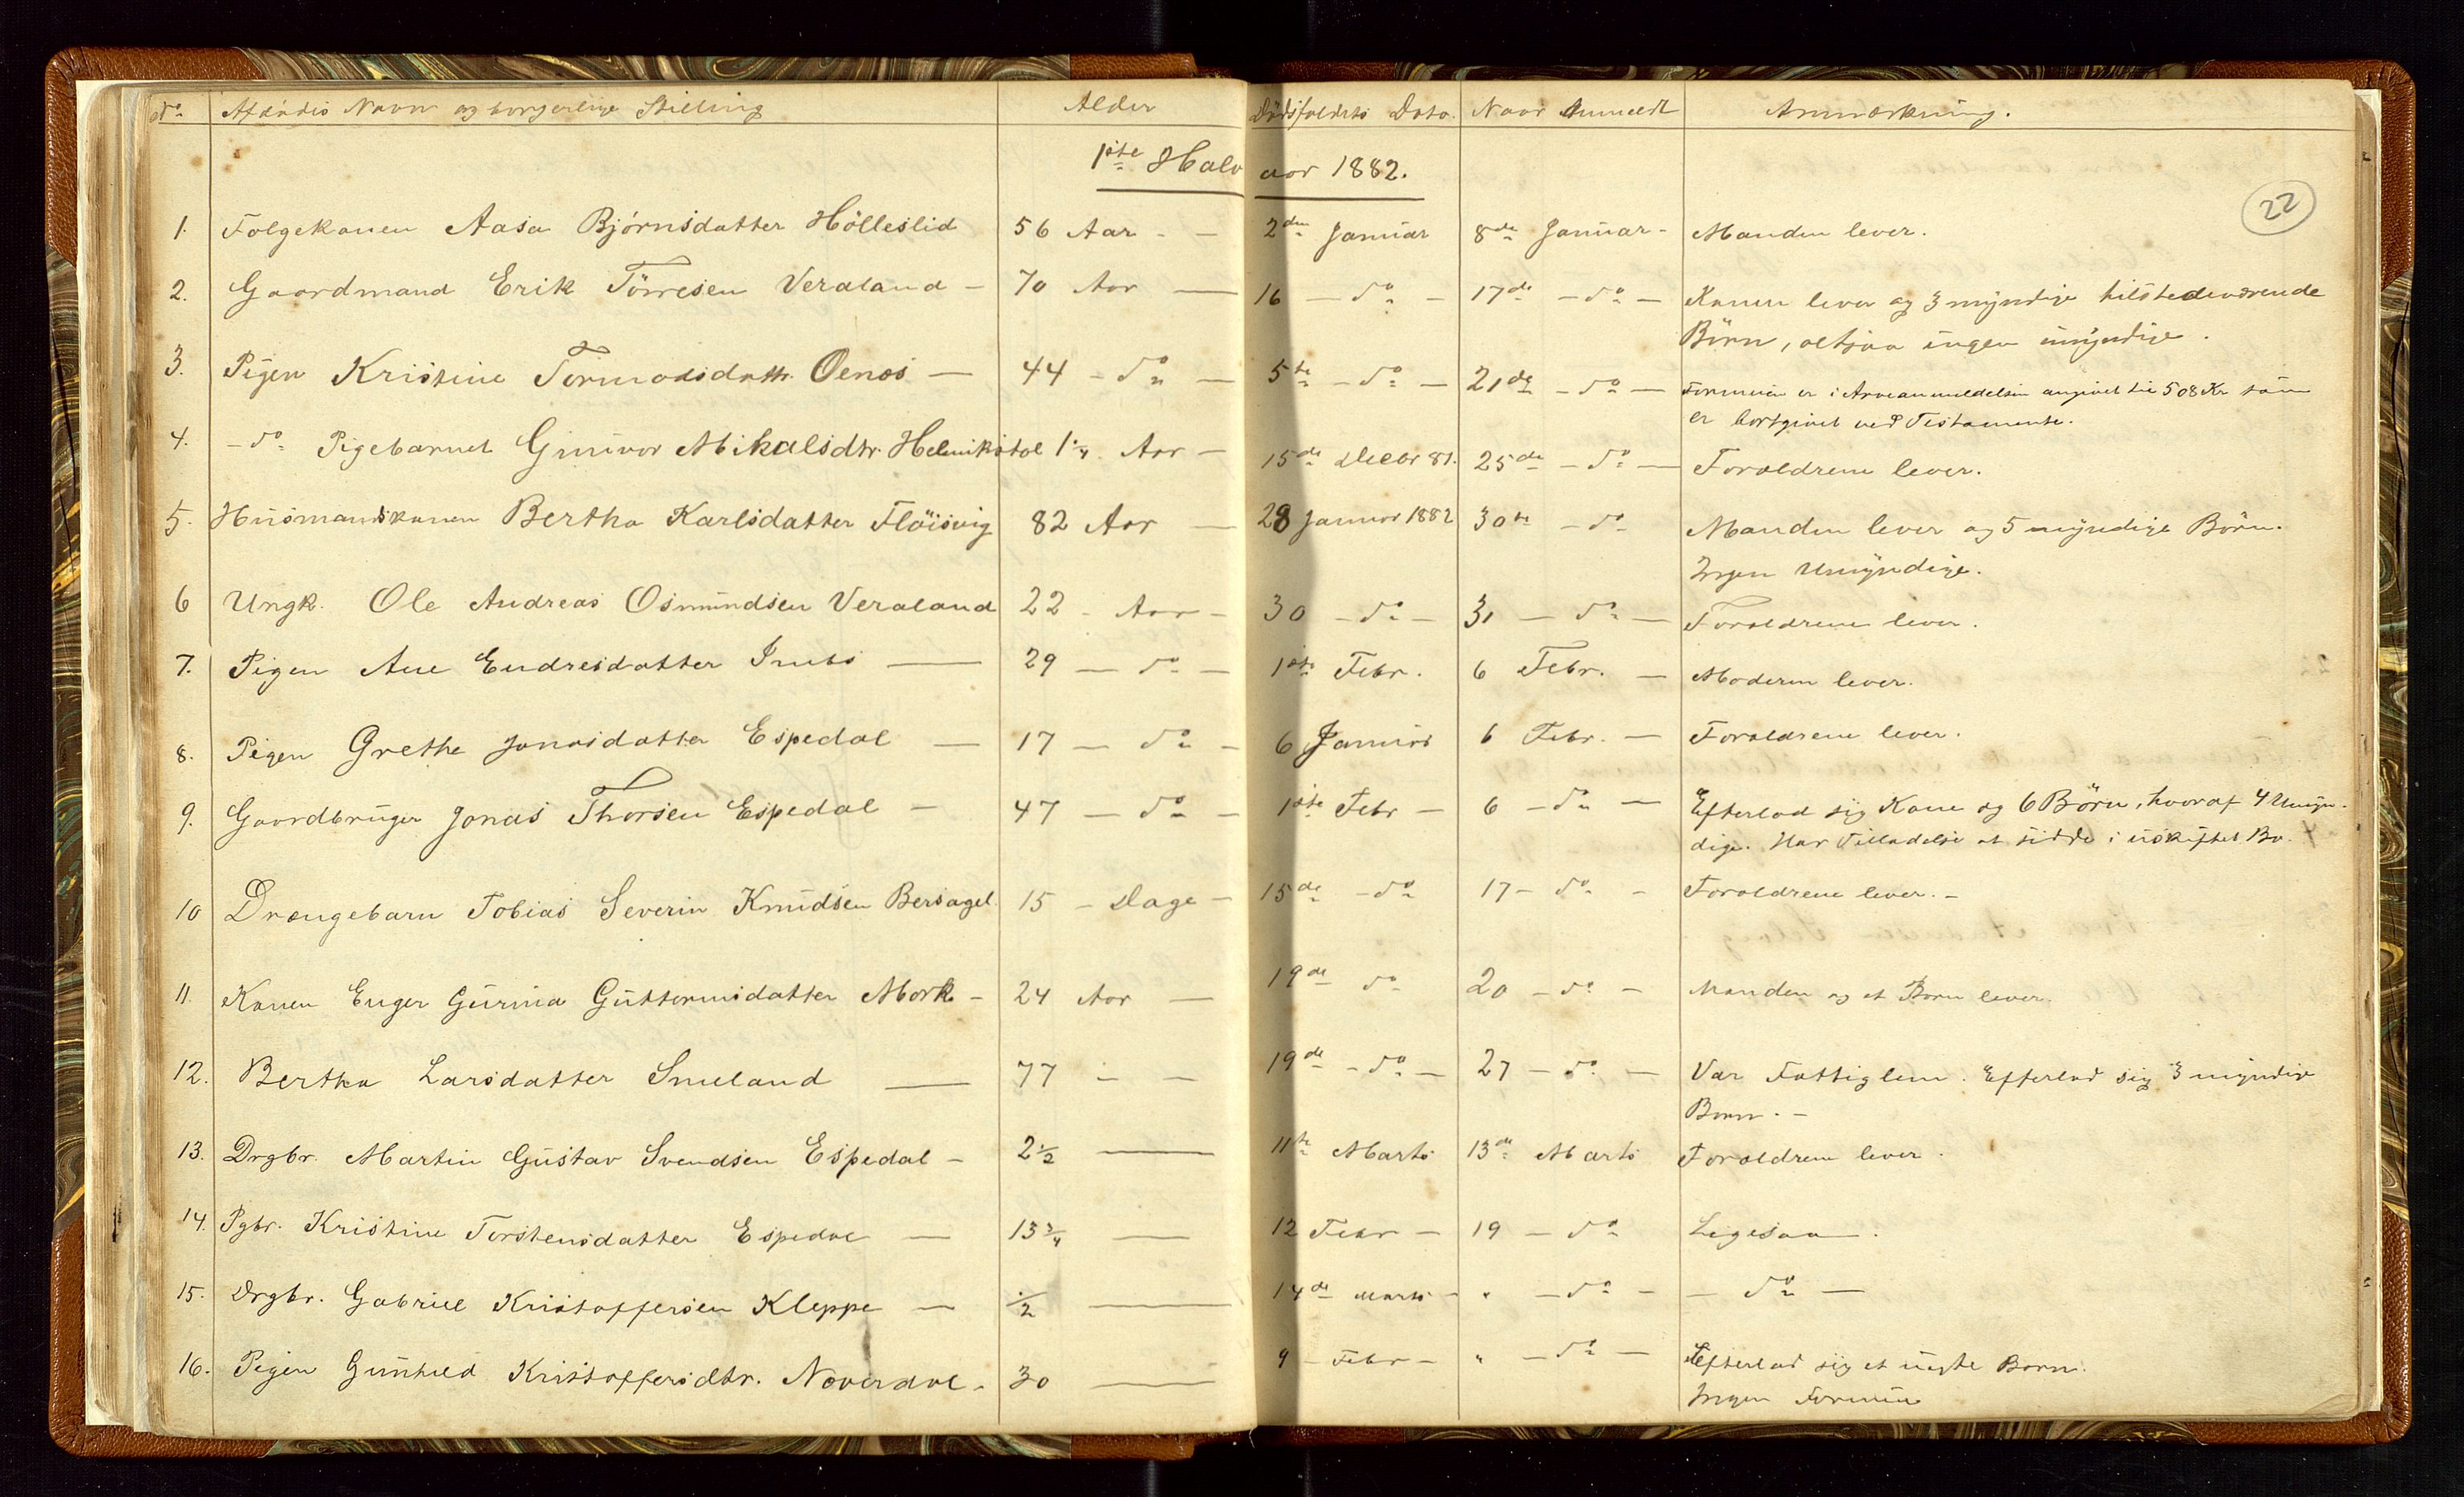 No. Afdødes Navn og borgerlige Stilling Alder Dødsfaldets Dato. Naar Anmeldt Anmærkning.
1ste Halvaar 1882.
22
1. Følgekonen Aasa Bjørnsdatter Hölleslid 56 Aar - - 2den Januar 8de Januar - Manden lever.
2. Gaardmand Erik Törresen Veraland - 70 Aar — 16 — do — 17de — do — Konen lever og 3 myndige tilstedeværende
Börn, altsaa ingen umyndige.
3. Pigen Kristine Tormodsdattr. Oenæs — 44 - do — 5te - do — 21de - do — Formuen er i Arveanmeldelsen angivet til 508 Kr som
er bortgivet ved Testamente.
4. - do Pigebarnet Gunvor Mikalsdtr. Helmikstöl 1 1/4 Aar — 15de Decbr 81. 25de - do — Foræeldrene lever.
5. Husmandskonen Bertha Karlsdatter Flöisvig 82 Aar — 28 Januar 1882 30te - do Manden lever og 5 myndige Börn.
Ingen Umyndige.
6 Ungk. Ole Andreas Osmundsen Veraland 22 - Aar - 30 - do - 31 — do — Forældrene lever.
7. Pigen Ane Endresdatter — 29 — do — 1ste Febr. 6 Febr. — Moderen lever.
8. Pigen Grethe Jonasdatter Espedal — 17 — do - 6 Januar 6 Febr. — Forældrene lever.
9. Gaardbruger Jonas Thorsen Espedal — 47 — do - 1ste Febr — 6 - do — Efterlod sig Kone og 6 Börn, hvoraf 4 Umyn-
dige. Har Tilladelse at sidde i uskiftet Bo.
10 Drængebarn Tobias Severin Knudsen Bersagel. 15 - Dage - 15de - do 17 - do - Forældrene lever. -
11. Konen Enger Gurina Guttormsdatter Mork - 24 Aar — 19de do 20 - do - Manden og et Barn lever.
12. Bertha Larsdatter Smeland — 77 - - 19de - do - 27 - do — Var Fattiglem. Efterlod sig 3 myndige
Börn. -
13. Drgbr. Martin Gustav Svendsen Espedal - 2 1/2 — 11te Marts 13de Marts Forældrene lever.
14. Pgbr. Kristine Torstensdatter Espedal — 13 3/4 — 12 Febr — 19 — do Ligesaa.
15. Drgbr. Gabriel Kristoffersen Kleppe — 1/2 — 14de Marts - " - do - - do —
16. Pigen Gunhild Kristoffersdtr. Noverdal - 30 — 9 - Febr - " - do — Efterlod sig et uægte Barn.
Ingen Formue